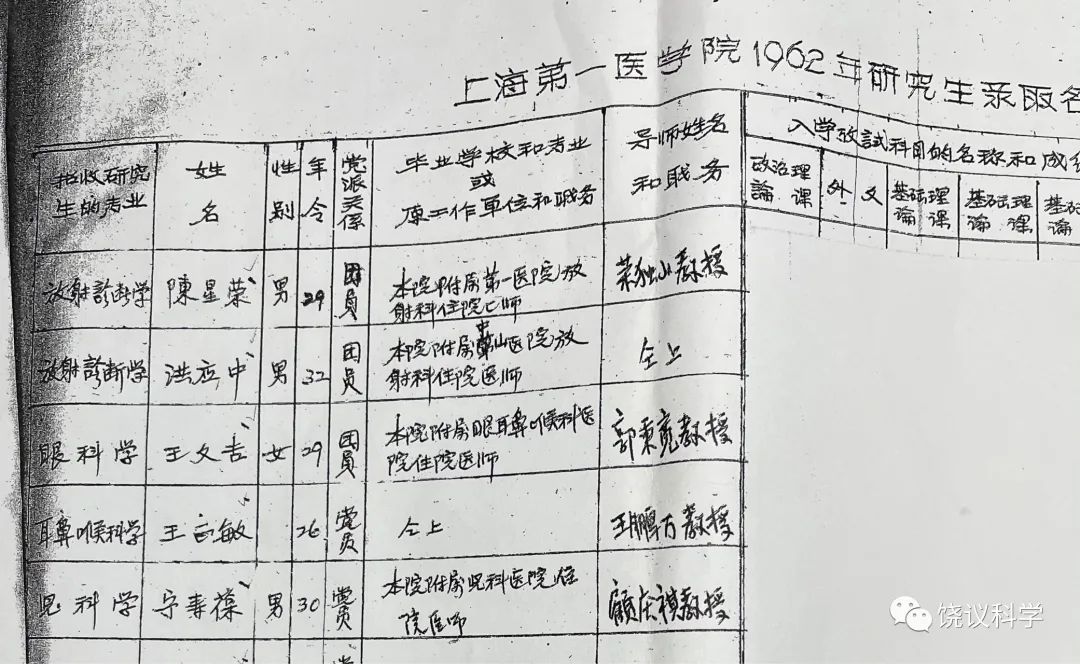 上海第一医学院1962年研究生录取名
招收研究
生的专业
姓
名
性
别
年
令
党
派
关
係
毕业学校和专业
或
原工作单位和职务
导师姓名
和职务
入学攷試科目的名称和成绩
政治理
論課
外文
基础理
论课
基础理
论课
基础
论
放射診断学 陳星荣 男 29 团員 本院附属第一医院放
射科住院医师 荣独山教授
放射診断学 洪应中 男 32 团员 本院附属中山医院放
射科住院医师 仝上
眼科学 王文吉 女 29 团員 本院附属眼耳鼻喉科医
院住院医师 郭秉寬教授
耳鼻喉科学 王正敏 26 党员 仝上 王鵬万教授
児科学 宁寿葆 男 30 党员 本院附属児科医院住
院医师 顧庆祺教授
党
饶议科学